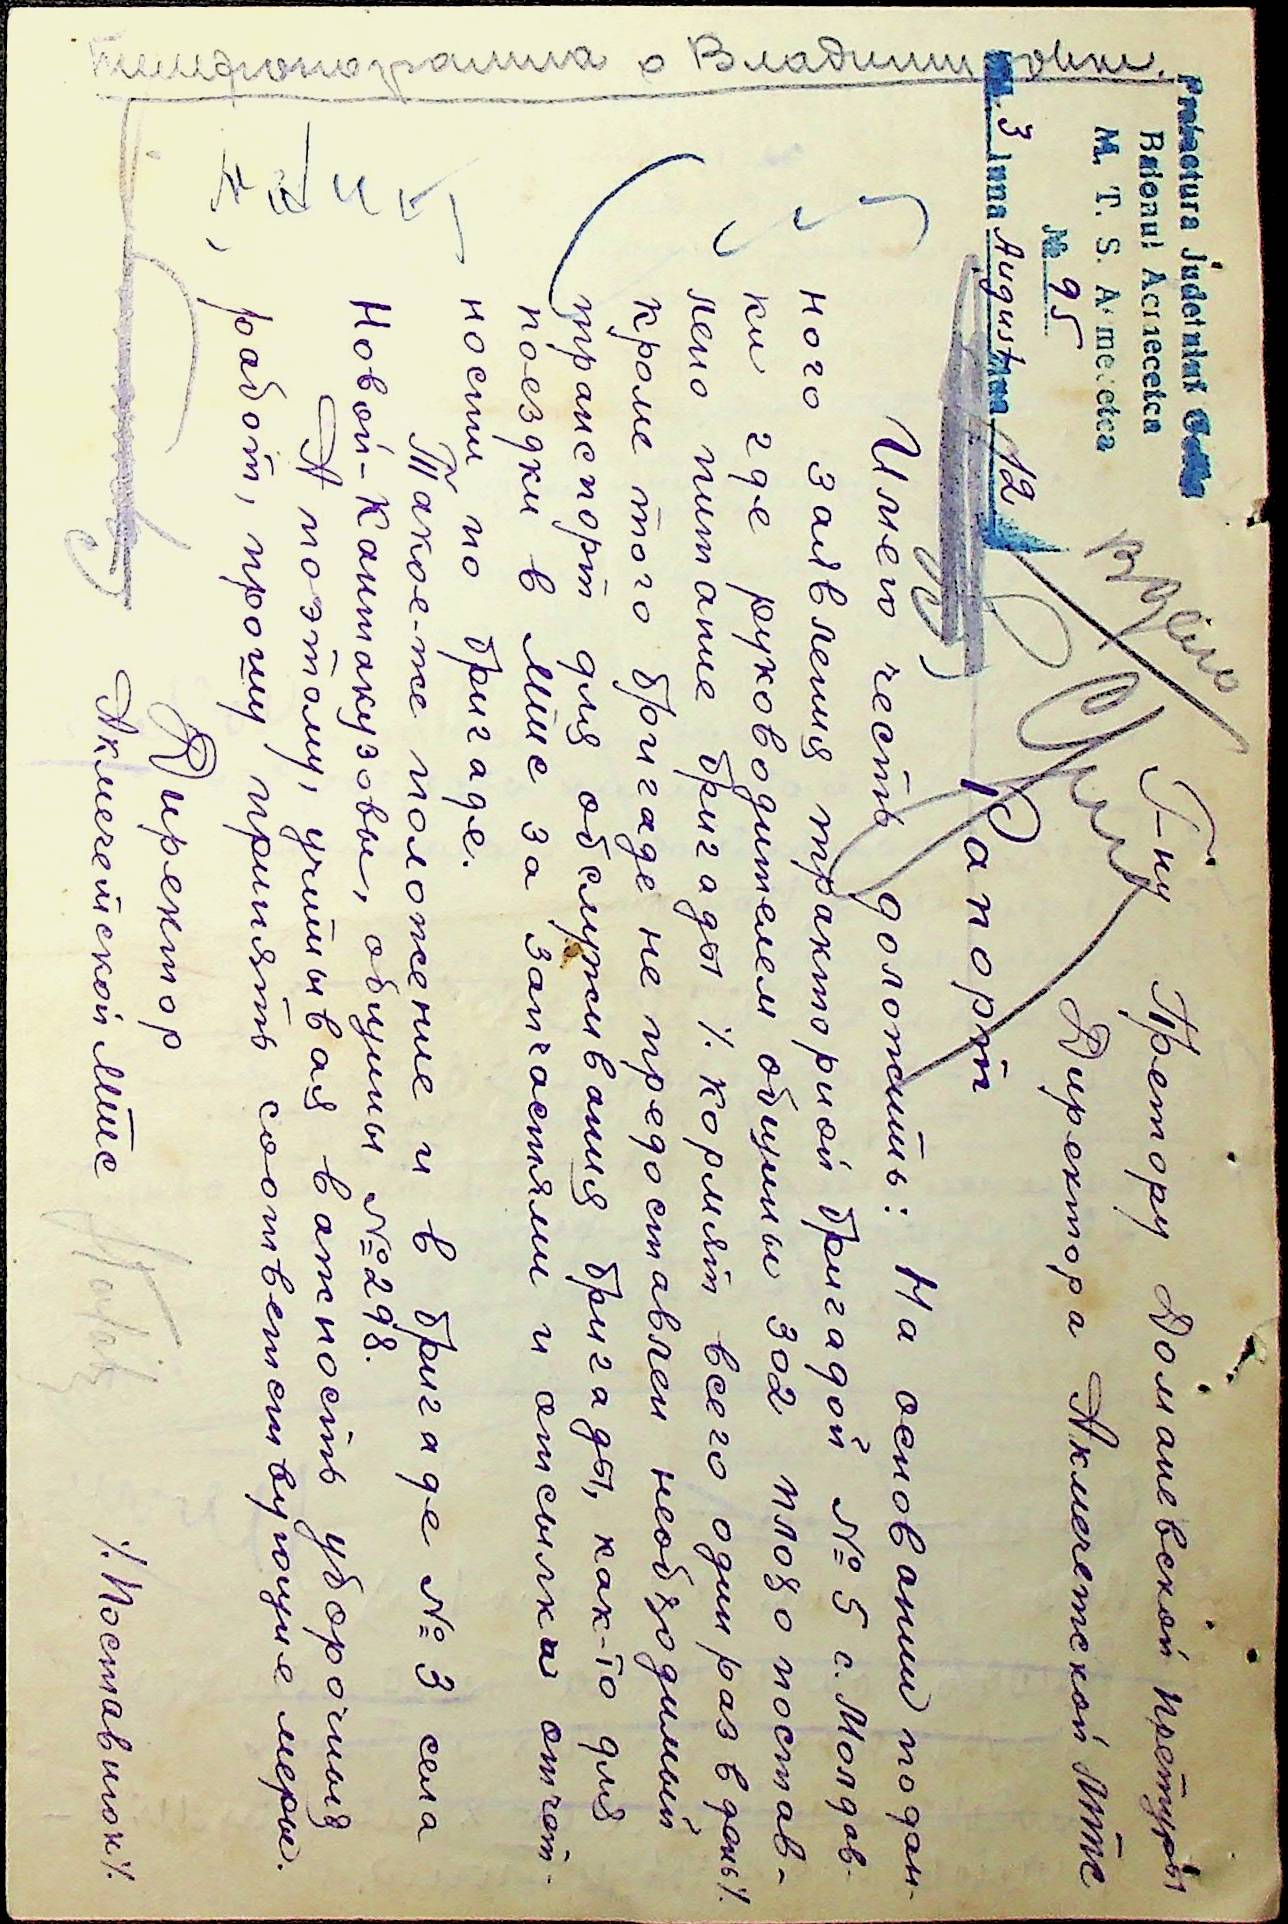 Prefectura Judetului Golta
Raionul Acmecetca
M. T. S. Acmecetca
№ 95
3 luna August 1942
В дело
Г-ну Претору Доманевской претуры
Директора Акмечетской МТС
Рапорт
Имею честь доложить: На основании подан-
ного заявления тракторной бригадой № 5 с. Молдав-
ки где руководителем общины 302 плохо постав-
лено питание бригады /. кормят всего один раз в день/.
кроме того бригаде не предоставлен необходимый
транспорт для обслуживания бригады, как-то для
поездки в МТС за запчастями и отсылка отчет-
ности по бригаде.
Такое-же положение и в бригаде № 3 села
Новой-Кантакузовы, общины № 298.
А поэтому, учитывая важность уборочных
работ, прошу принять соответствующие меры.
Директор
Акмечетской МТС /.Поставнюк/.
Телефонограмма